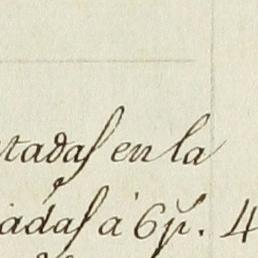 tadas en la
iadas á 6p. 4